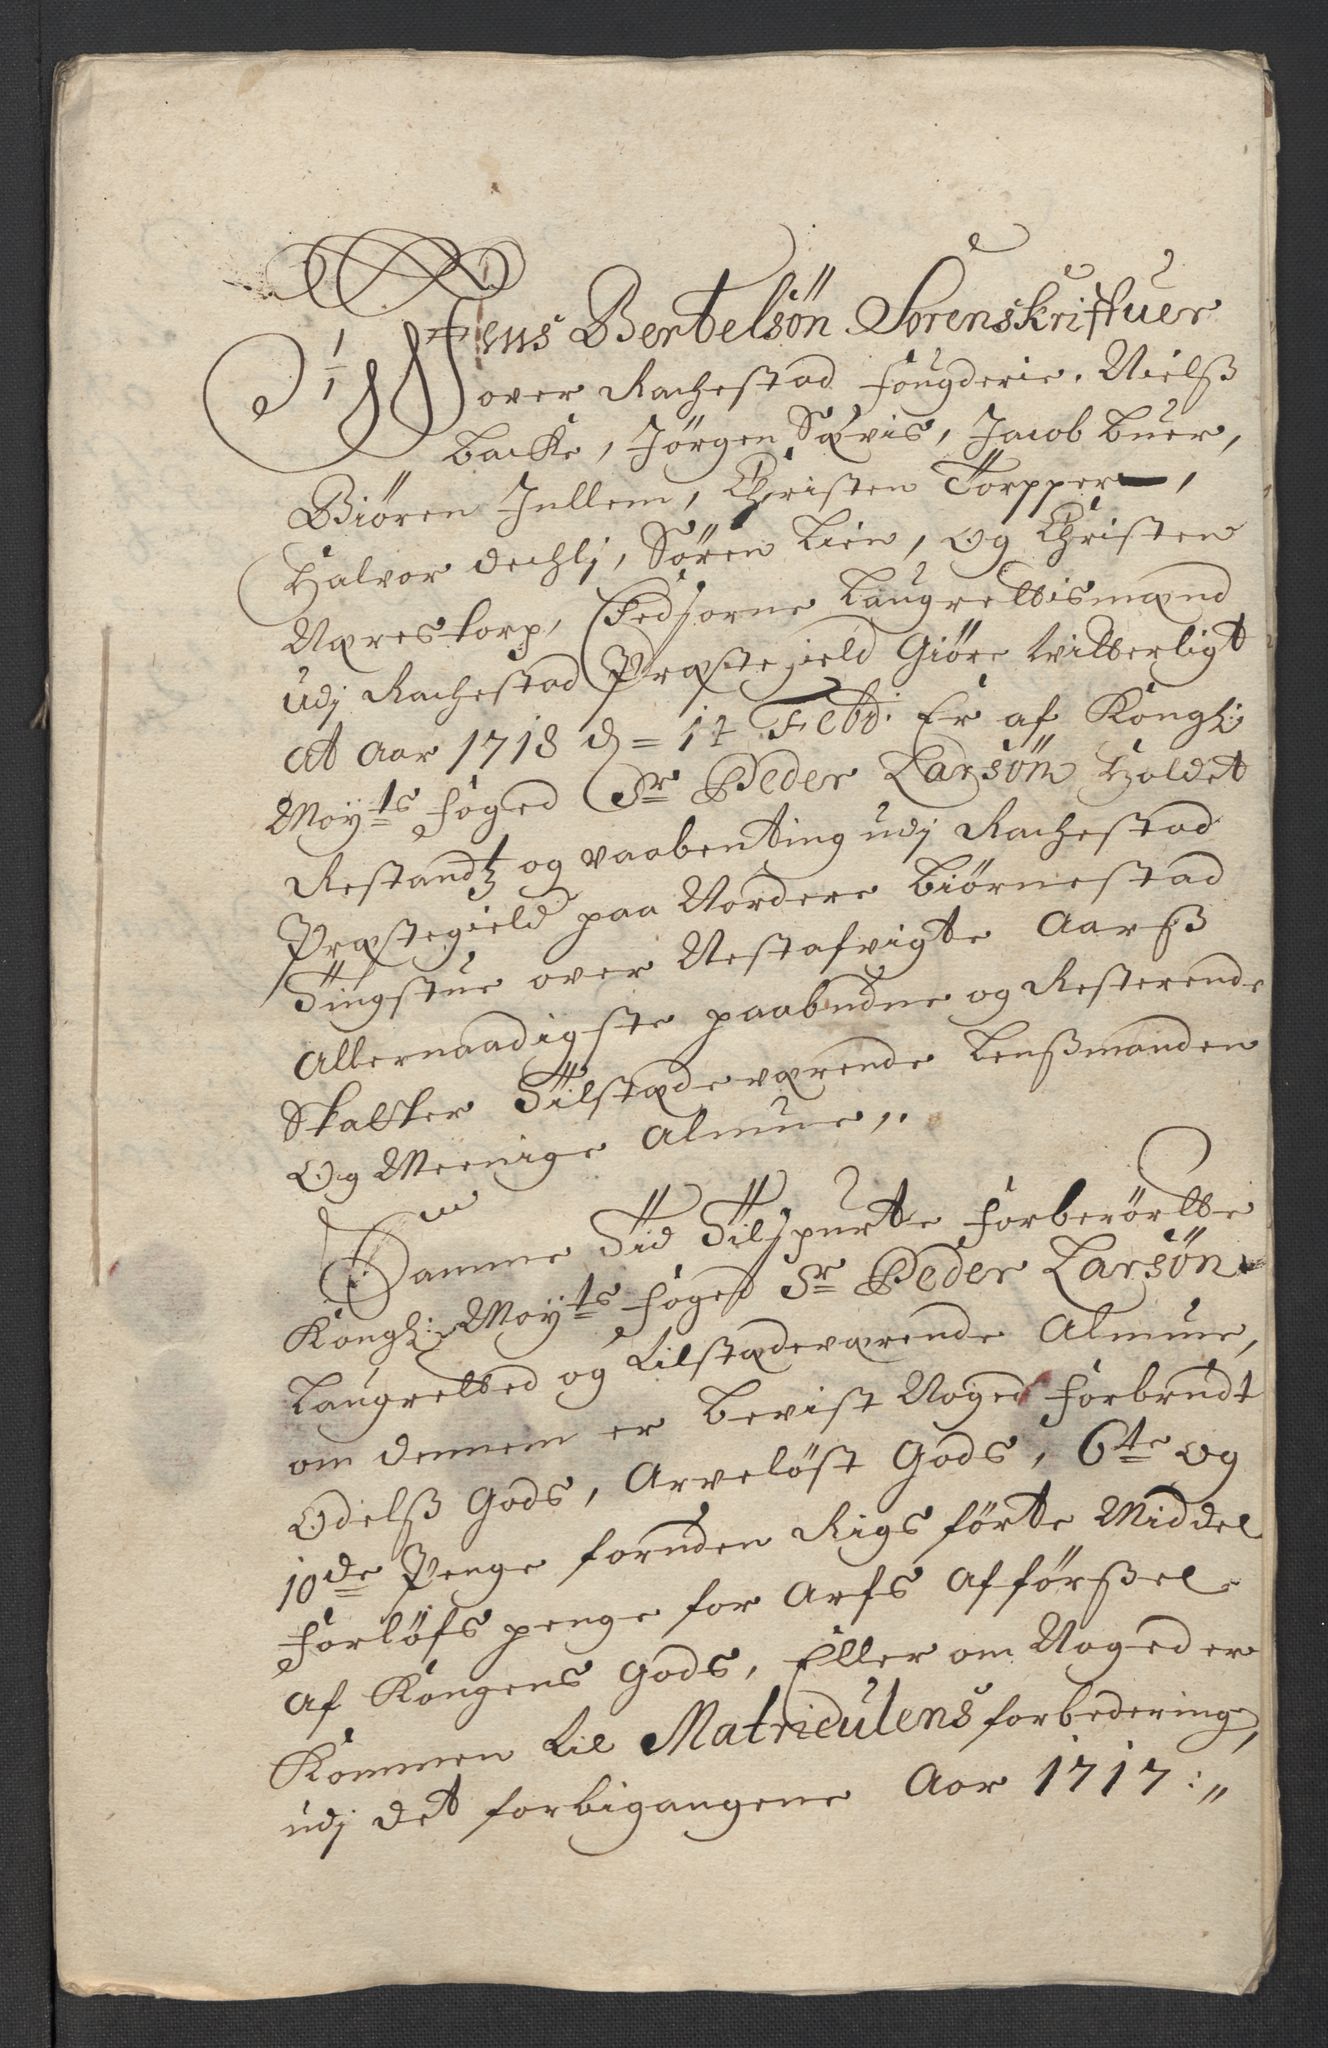 Jens Bertelsön Sorenskriffuer
over Rachestad fougderie. Nielß
backe, Jörgen Sævis, Jacob buer,
Biören Jullem, Christen Torpper,
Halvor dechlj, Sören Lien, og Christen
Næreстorp, Eedsorne Laugrettismænd
udj Rachestad Præstegield Giöre vitterligt
at Aar 1718 d = 17 Febr: Er af Kongl:
Mayts foged Sr Peder Larsön Holdet
Restandtz og vaabenting udj Rachestad
Præstegield paa Nordere biörnestad
Tingstue over Nestafvigte Aarß
Allernaadigste paabudne og Resterende
Skatter Tilstædeværende Lenßmanden
Og Meenige Almue,.
Samme Tid Tilspurte forberörtte
Kongl: Mayts foged Sr Peder Larsön
Laugretted og tilstædeværende Almue,
om dennem er bevist Noged forbrudt
Odelß Gods, Arvelöst Gods, 6te og
10de Penge foruden Rigs förte Middel
forlöfs penge for Arfs Afförßel
af Kongens Gods, Eller om Noged er
Kommen til Matriculens forbedering,
udj det forbigangene Aar 1717:,,